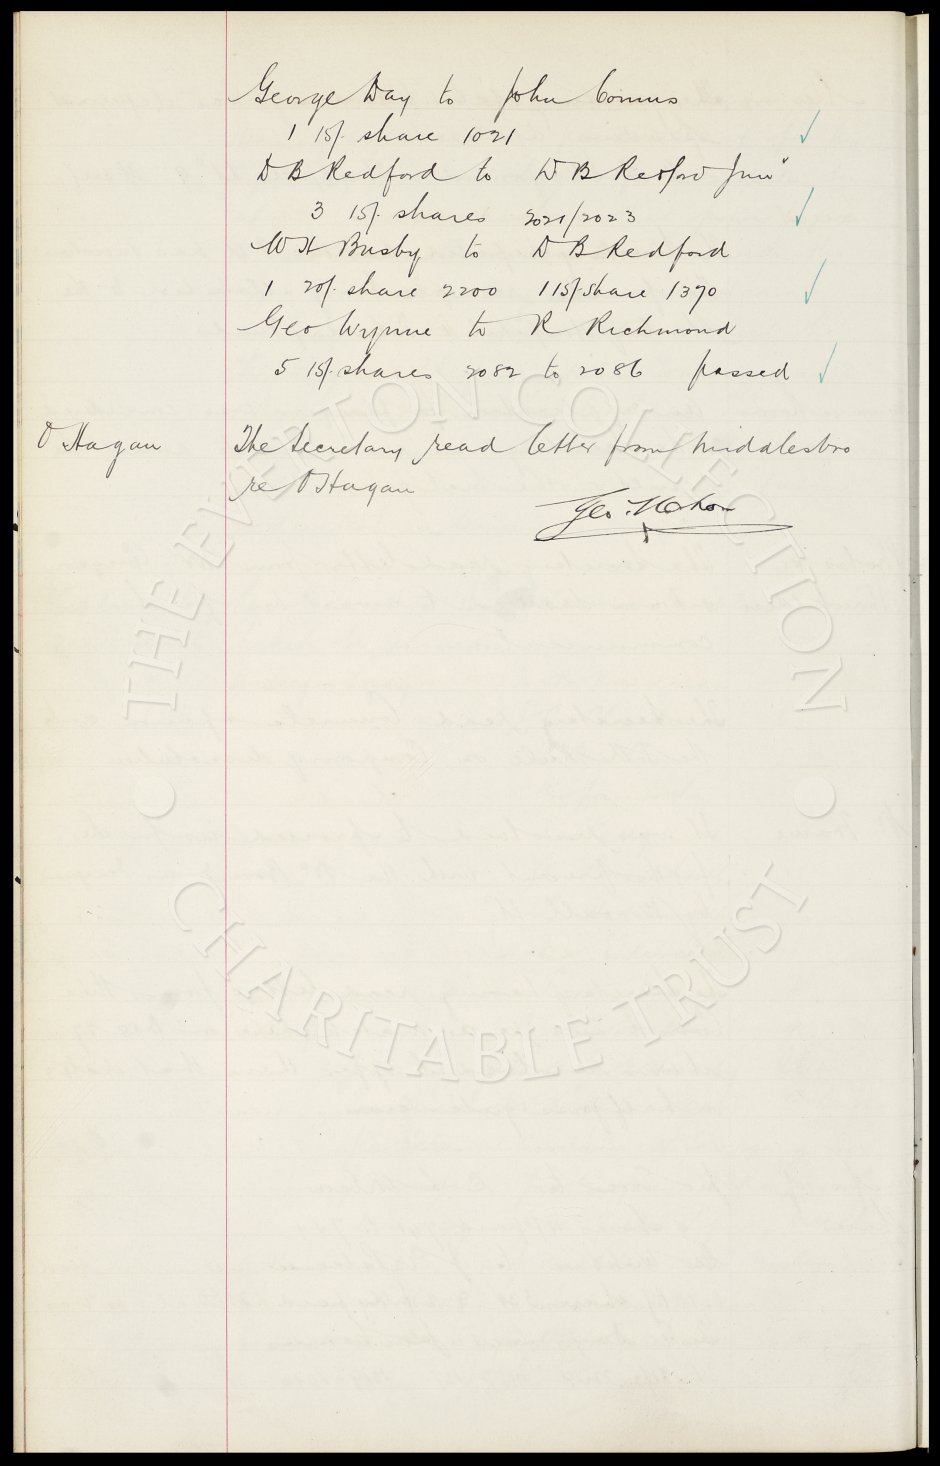 George Day to John Comus
1 15/- share 1021
D B Redford to D B Redford Junr
3 15/- shares 2021/2023
W H Busby to D B Redford
1 20/- share 2200 1 15/- share 1370
Geo Wynne to R Richmond
5 15/- shares 2082 to 2086 passed
O Hagan
The Secretary read letter from Middlesbro
re O Hagan
Geo. Mahon
THE EVERTON COLLECTION
CHARITABLE TRUST